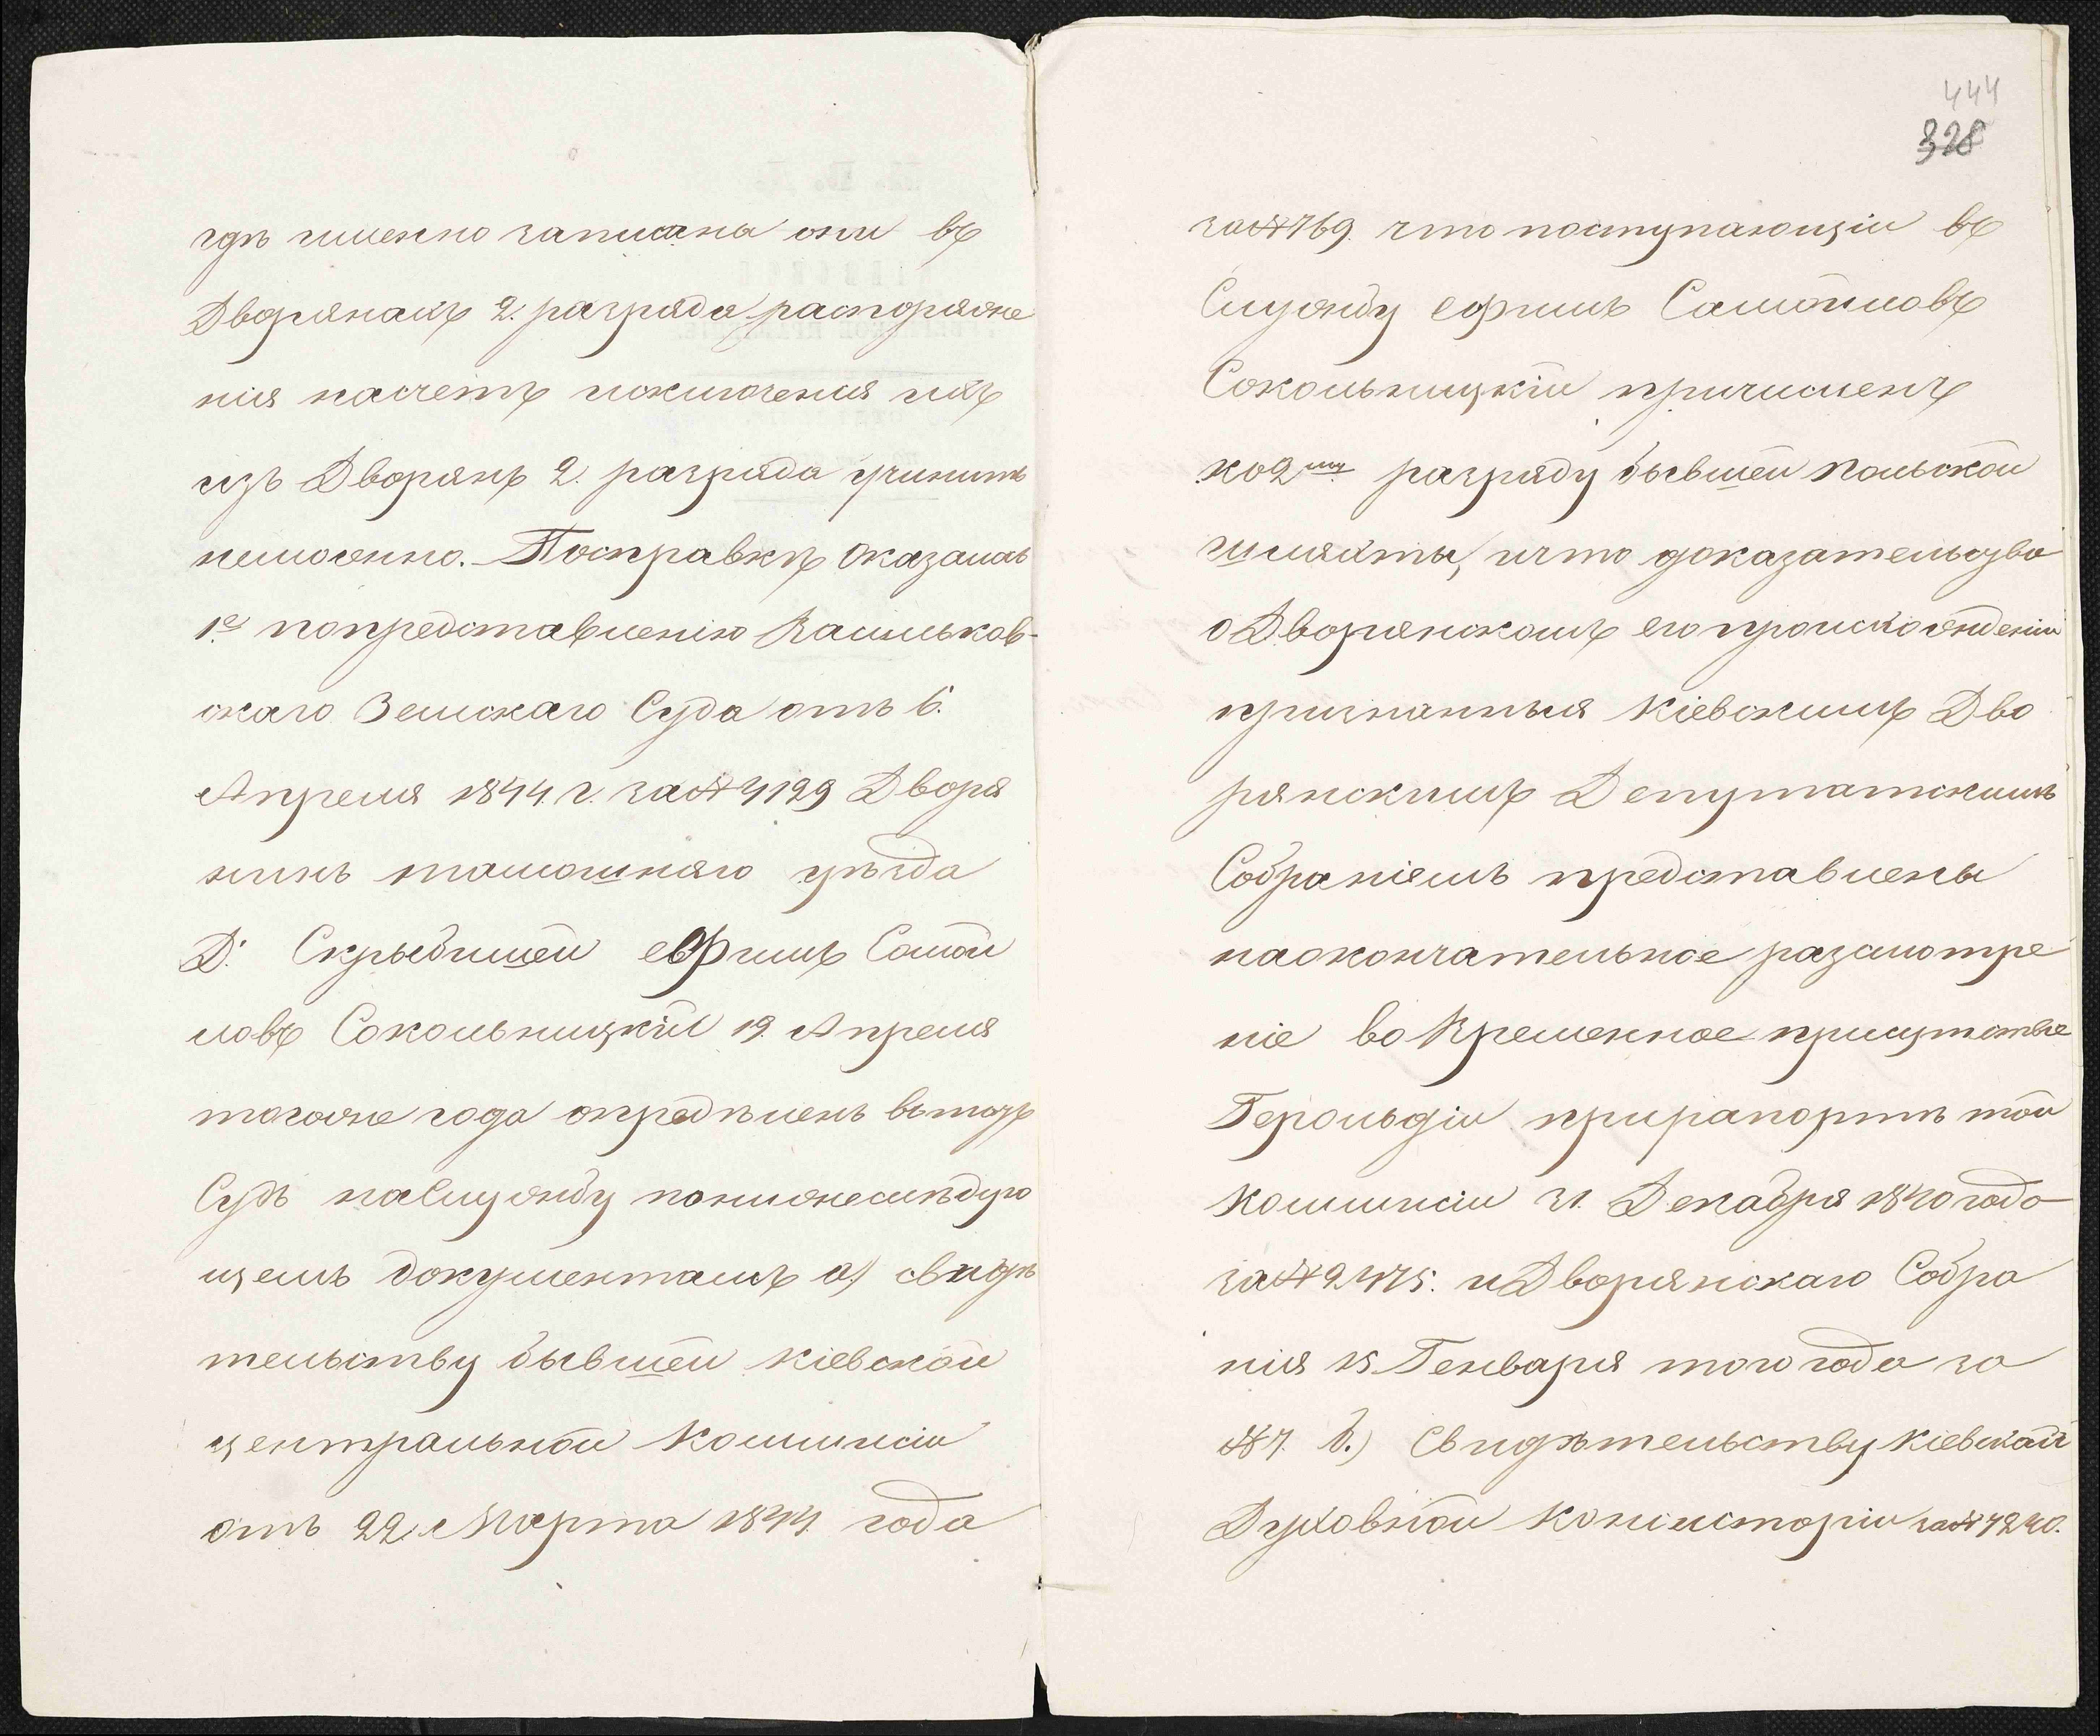 гдѣ именно записаны они въ
Дворянахъ 2. разряда распоряже
нія насчетъ исключенія ихъ
изъ Дворянъ 2. разряда учинить
неможно. Посправкѣ оказалась
1е попредставленію Васильков-
скаго Земскаго Суда отъ 6.
Апреля 1844. г. за№ 4129 Дворя
нинъ тамошняго уѣзда
Д: Скрыбишей ефимъ Самой
ловъ Сокольницкій 19. Апреля
тогоже года опредѣленъ вътотъ
Судъ наслужбу понижеслѣдую
щемъ документамъ а) свидѣ
тельству бывшей Кіевской
центральной Коммисіи
отъ 22. Марта 1844. года
444
328
за№769. что поступающій въ
Службу ефимъ Самойловъ
Сокольницкій причисленъ
ко2му разряду бывшей Польской
шляхты, ичто доказательства
оДворянскомъ его происхожденіи
признанныя Кіевскимъ Дво
рянскимъ Депутатскимъ
Собраніемъ представлены
наокончательное разсмотре
ніе воВременное присутствіе
Герольдіи прирапортѣ той
Коммисіи 31. Декабря 1840 года
за№ 2475. иДворянскаго Собра
нія 15 Генваря того года за
№ 7. б.) Свидѣтельству Кіевской
Духовной Консисторіи за№ 7240.